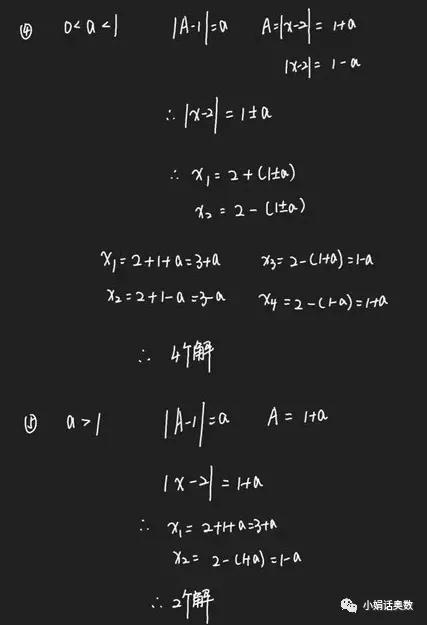 ④ 0<a<1 |A-1|=a A=|x-2|=1+a
|x-2|=1-a
∴ |x-2|=1±a
∴ x₁=2+(1±a)
x₂=2-(1±a)
x₁=2+1+a=3+a x₃=2-(1+a)=1-a
x₂=2+1-a=3-a x₄=2-(1-a)=1+a
∴ 4个解
⑤ a>1 |A-1|=a A=1+a
|x-2|=1+a
∴ x₁=2+1+a=3+a
x₂=2-(1+a)=1-a
∴ 2个解
小娟话奥数